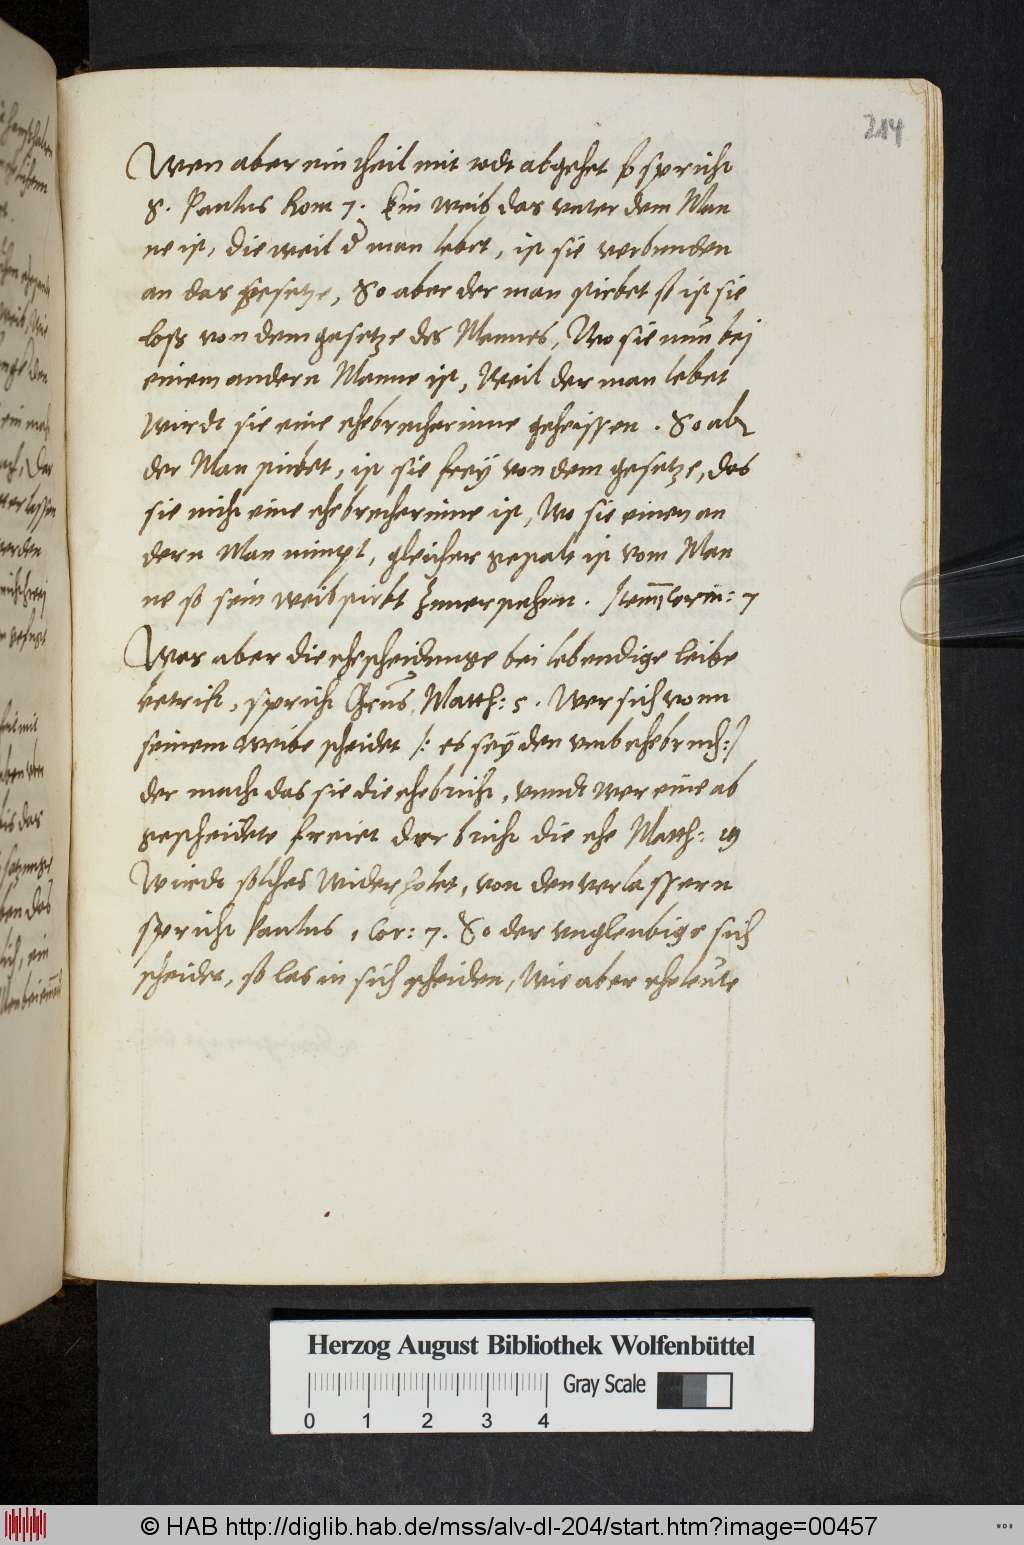 214
Wen aber ein theil mit todt abgehet so spricht
S. Paulus Rom 7. Ein weib das vnter dem Man
ne ist, die weil d man lebet, ist sie verbunden
an das gesetze, So aber der man stirbet so ist sie
loss von dem gesetze des Mannes, Wo sie nun bei
einem andern Manne ist, Weil der man lebet
wirdt sie eine ehebrecherinne geheissen. So aber
der Man stirbet, ist sie freÿ von dem gesetze, das
sie nicht eine ehebrecherinne ist, Wo sie einen an
dern Man nimpt, gleicher gestalt ist vom Man
ne so sein weib stirbt zuuerstehen. Item 1 Corin: 7
Was aber die ehescheidunge bei lebendige leibe
betrift, spricht Matth: 5. Wer sich vonn
seinem weibe scheidet /: es seÿ den vmb ehebruch:/
der macht das sie die ehe bricht, vnndt wer eine ab
gescheidete freiet der bricht die ehe Matth: 19
Wirdt solches widerholet, von den verlassern
spricht Paulus 1 Cor: 7. So der vngleubige sich
scheidet, so las in sich scheiden, Wie aber eheleute
Herzog August Bibliothek Wolfenbüttel
Gray Scale
0 1 2 3 4
© HAB http://diglib.hab.de/mss/alv-dl-204/start.htm?image=00457